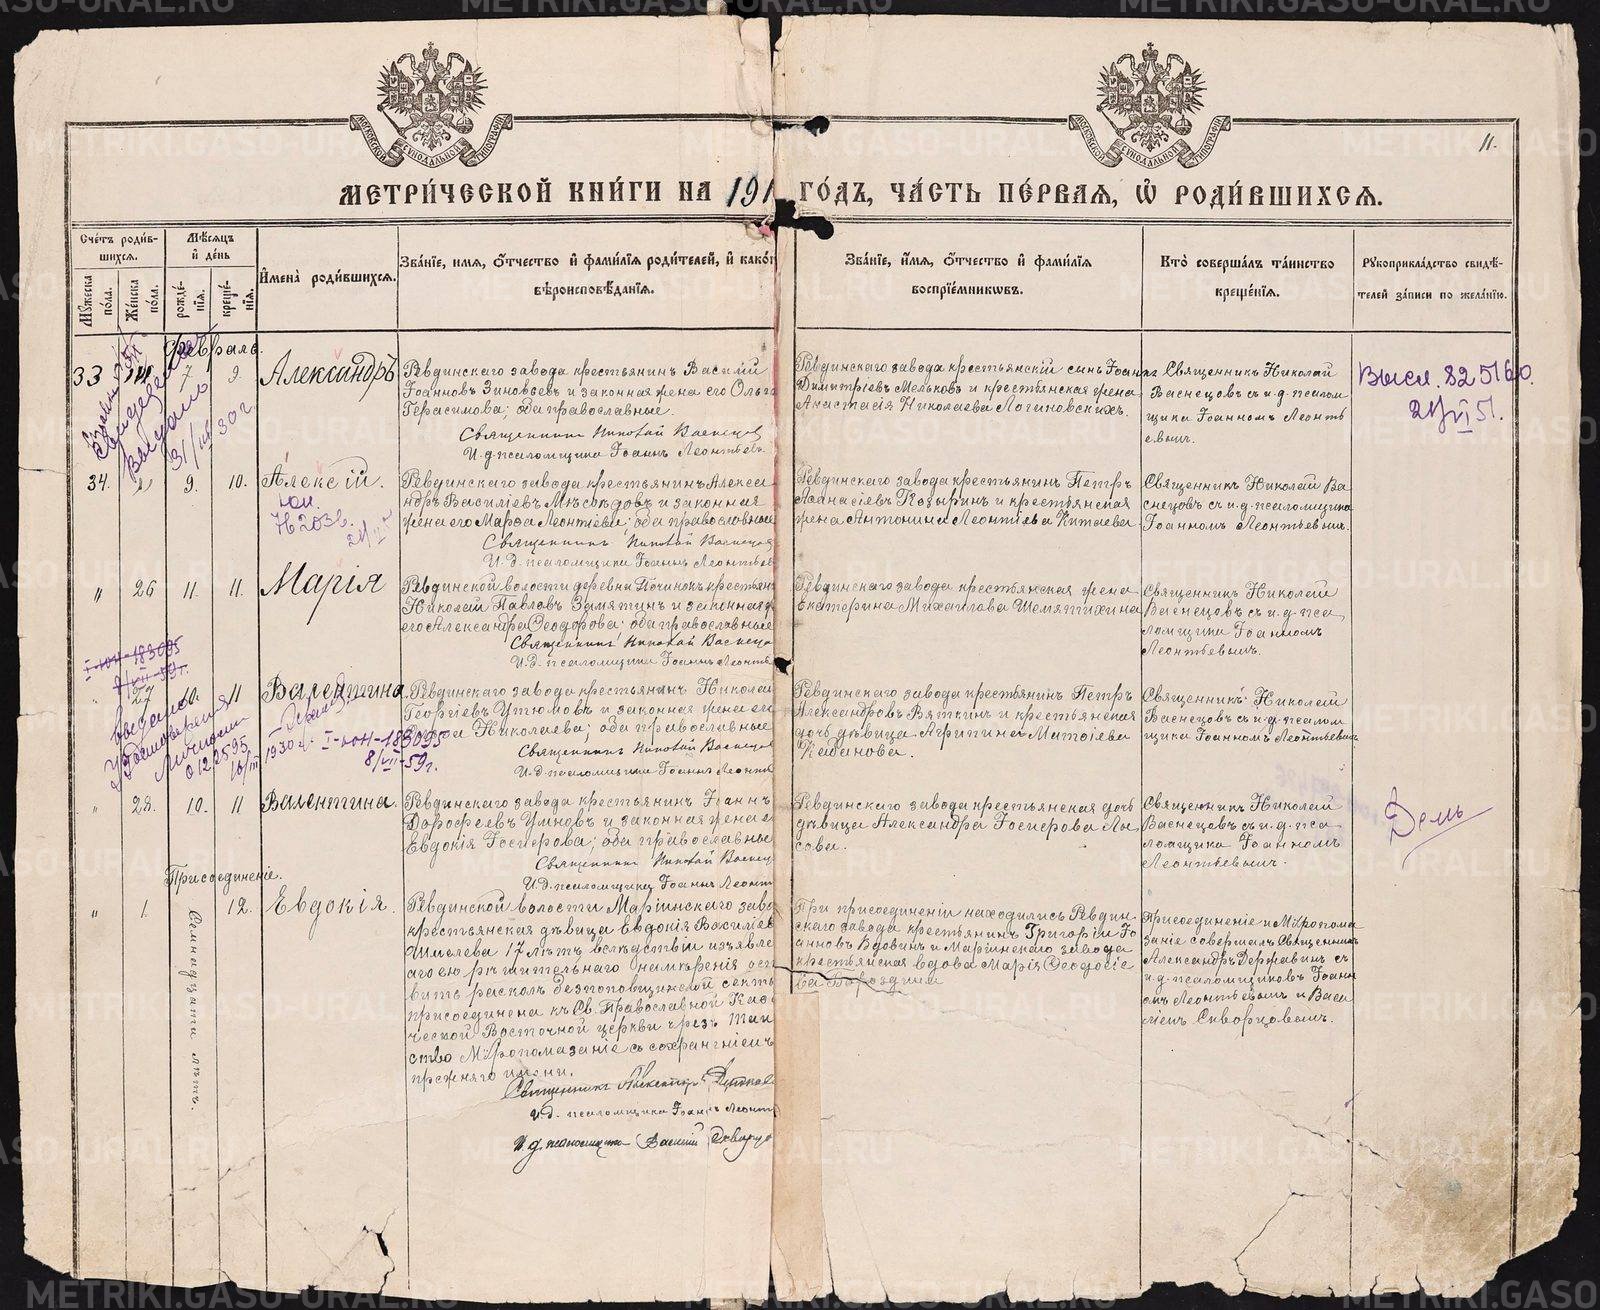 МОСКОВСКОЙ СѴНОДАЛЬНОЙ ТИПОГРАФІИ
МОСКОВСКОЙ СѴНОДАЛЬНОЙ ТИПОГРАФІИ
11.
МЕТРИ́ЧЕСКОЙ КНИ́ГИ НА 191 ГО́ДЪ, ЧА́СТЬ ПЕ́РВАЯ, Ѡ҆ РОДИ́ВШИХСЯ.
Сче́тъ роди́в-
шихся.
Мѣ́сяцъ
и҆ де́нь
Мꙋ́жеска по́ла.
Же́нска по́ла.
рожде́-нїя.
креще́-нїя.
И҆мена̀ роди́вшихся.
Зва́нїе, и҆мя, ѻ҆́тчество и҆ фами́лїя роди́телей, и҆ како́г
вѣроисповѣ́данїя.
Зва́нїе, и҆́мя, ѻ҆́тчество и҆ фами́лїя
воспрїе́мниковъ.
Кто̀ соверша́лъ та́инство
креще́нїя.
Рꙋкоприкла́дство свидѣ́-
телей за́писи по жела́нїю.
Февраль.
33 7 9. Александръ
Ревдинскаго завода крестьянин Василій
Іоанновъ Зиновьев и законная жена его Ольга
Герасимова; оба православные.
Священник Николай Васнецов
И. д. псаломщика Іоаннъ Леонтьевъ.
Ревдинскаго завода крестьянскій сынъ Іоаннъ
Димитріевъ Мельковъ и крестьянская жена
Анастасія Николаева Логиновскихъ.
Священникъ Николай
Васнецовъ съ и. д. псалом
щика Іоанномъ Леонть
евымъ.
Высл. 825160.
21/VI 51.
Выдано
31/ 30 г.
34. " 9. 10. Алексій.
Юи.
2032.
Ревдинскаго завода крестьянинъ Алекса
ндръ Васильевъ и законная
жена его Марѳа Леонтіева; оба православные
Священникъ Николай Васнецов
И. д. псаломщика Іоаннъ Леонтьев
Ревдинскаго завода крестьянинъ Петръ
Аѳанасіевъ Козыринъ и крестьянская
жена Антонина Леонтіева Китаева
Священникъ Николай Ва
снецовъ съ и. д. псаломщика
Іоанномъ Леонтьевымъ.
" 26 11. 11. Марія
Ревдинской волости деревни Починокъ крестьян
Николай Павловъ Замятинъ и законная ж
его Александра Ѳеодорова; оба православные
Священникъ Николай Васнецо
И. д. псаломщика Іоаннъ Леонтье
Ревдинскаго завода крестьянская жена
Екатерина Михаилова Шемятихина
Священникъ Николай
Васнецовъ съ и. д. пса
ломщика Іоанномъ
Леонтьевымъ.
I-юи-183095
8/VII-59 г.
" 27 10. 11 Валентина
Ревдинскаго завода крестьянинъ Николай
Георгіевъ Утюмовъ и законная жена его
Николаева; оба православные
Священникъ Николай Васнецов
И. д. псаломщика Іоаннъ Леонть
Ревдинскаго завода крестьянинъ Петръ
Александровъ Вяткинъ и крестьянская
дочь дѣвица Агрипина Матѳіева
Кабанова.
Священникъ Николай
Васнецовъ съ и. д. псалом
щика Іоанномъ Леонтьевымъ
выдано
Удостоверение
Личности
012595
16/III 1930 г.
I-юи-183095
8/VII-59 г.
" 28. 10. 11 Валентина.
Ревдинскаго завода крестьянинъ Іоаннъ
Дороѳеевъ Умновъ и законная жена е
Евдокія Госпирова; оба православные
Священникъ Николай Васнец
И. д. псаломщика Іоаннъ Леонт
Ревдинскаго завода крестьянская дочь
дѣвица Александра Госпирова Лы
сова.
Священникъ Николай
Васнецовъ съ и. д. пса
ломщика Іоанномъ
Леонтьевымъ.
Присоединеніе.
" 1. Семнадцати лѣтъ. 12. Евдокія.
Ревдинской волости Маріинскаго заво
крестьянская дѣвица Евдокія Василіев
Шмелева 17 лѣтъ вслѣдствіи изъявле
аго ею рѣшительнаго намѣренія ост
вить расколъ безпоповщинской секты
присоединена къ Св. Православной Каѳ
ческой Восточной церкви чрезъ таи
ство Мѵропомазаніе съ сохраненіемъ
прежняго имени.
Священникъ Александръ
И. д. псаломщика Іоаннъ Леонт
И. д. псаломщика Василій Скворцо
При присоединеніи находились Ревдин
скаго завода крестьянинъ Григорій Іо
анновъ Вдовинъ и Маріинскаго завода
крестьянская вдова Марія Ѳеодосіе
ва Бороздина
Присоединеніе и Мѵропома
заніе совершалъ Священникъ
Александръ Державинъ съ
и. д. псаломщиковъ Іоанн
омъ Леонтьевымъ и Васи
ліемъ Скворцовымъ.
METRIKI.GASO-URAL.RU